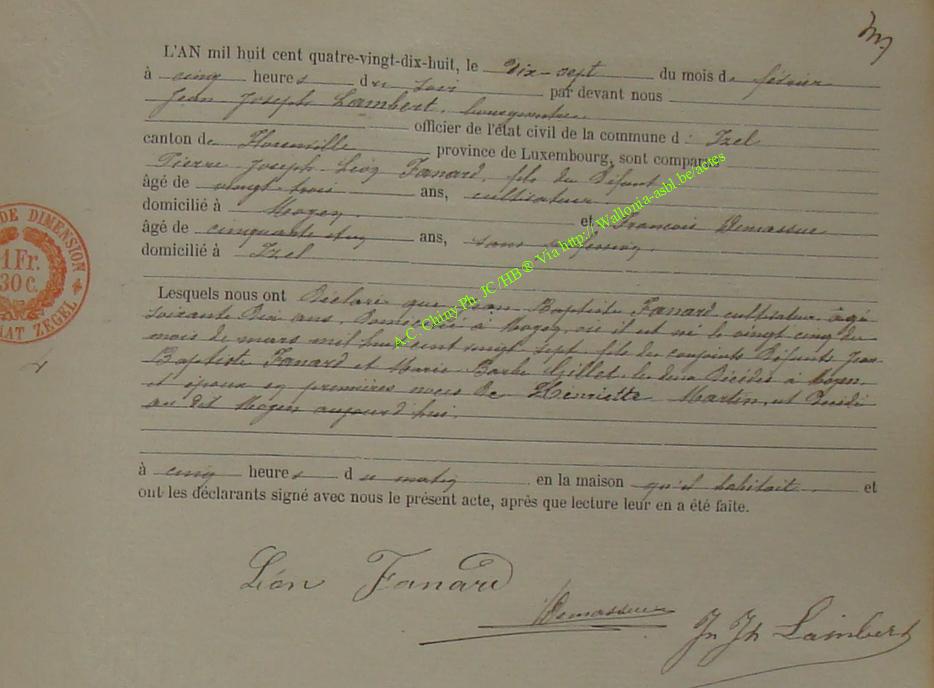 L'AN mil huit cent quatre-vingt-dix-huit, le Dix-sept du mois de février
à cinq heures du soir par devant nous
Jean Joseph Lambert, bourgmestre
officier de l'état civil de la commune d Izel
canton de Florenville province de Luxembourg, sont comparus
Pierre Joseph Léon Fanard, fils du Défunt
âgé de vingt-trois ans, cultivateur
domicilié à Moyen et François Demasue
âgé de cinquante et un ans, sans profession
domicilié à Izel
Lesquels nous ont Déclaré que Jean Baptiste Fanard cultivateur âgé
soixante Dix ans, Domicilié à Moyen, où il est né le vingt cinq du
mois de mars mil huit cent vingt sept, fils des conjoints Défunts Jean
Baptiste Fanard et Marie Barbe Gillet, les deux Décédés à Moyen
et époux en premières noces de Henriette Martin, est Décédé
au dit Moyen aujourd'hui
à cinq heures du matin en la maison qu'il habitait et
ont les déclarants signé avec nous le présent acte, après que lecture leur en a été faite.
Léon Fanard
Demasue
Jn Jh Lambert
DE DIMENSION
1 Fr.
30 C.
ZEGEL
A.C Chiny Ph. JC /HB ® Via http://Wallonia-asbl.be/actes